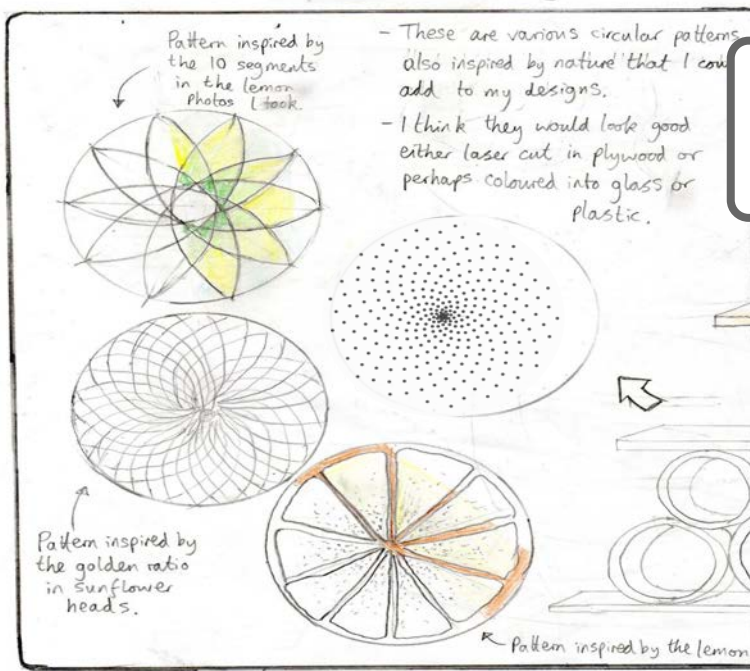 Pattern inspired by
the 10 segments
in the lemon
photos I took.
- These are various circular patterns
also inspired by nature that I
add to my designs.
- I think they would look good
either laser cut in plywood or
perhaps coloured into glass or
plastic.
Pattern inspired by
the golden ratio
in sunflower
heads.
Pattern inspired by the lemon